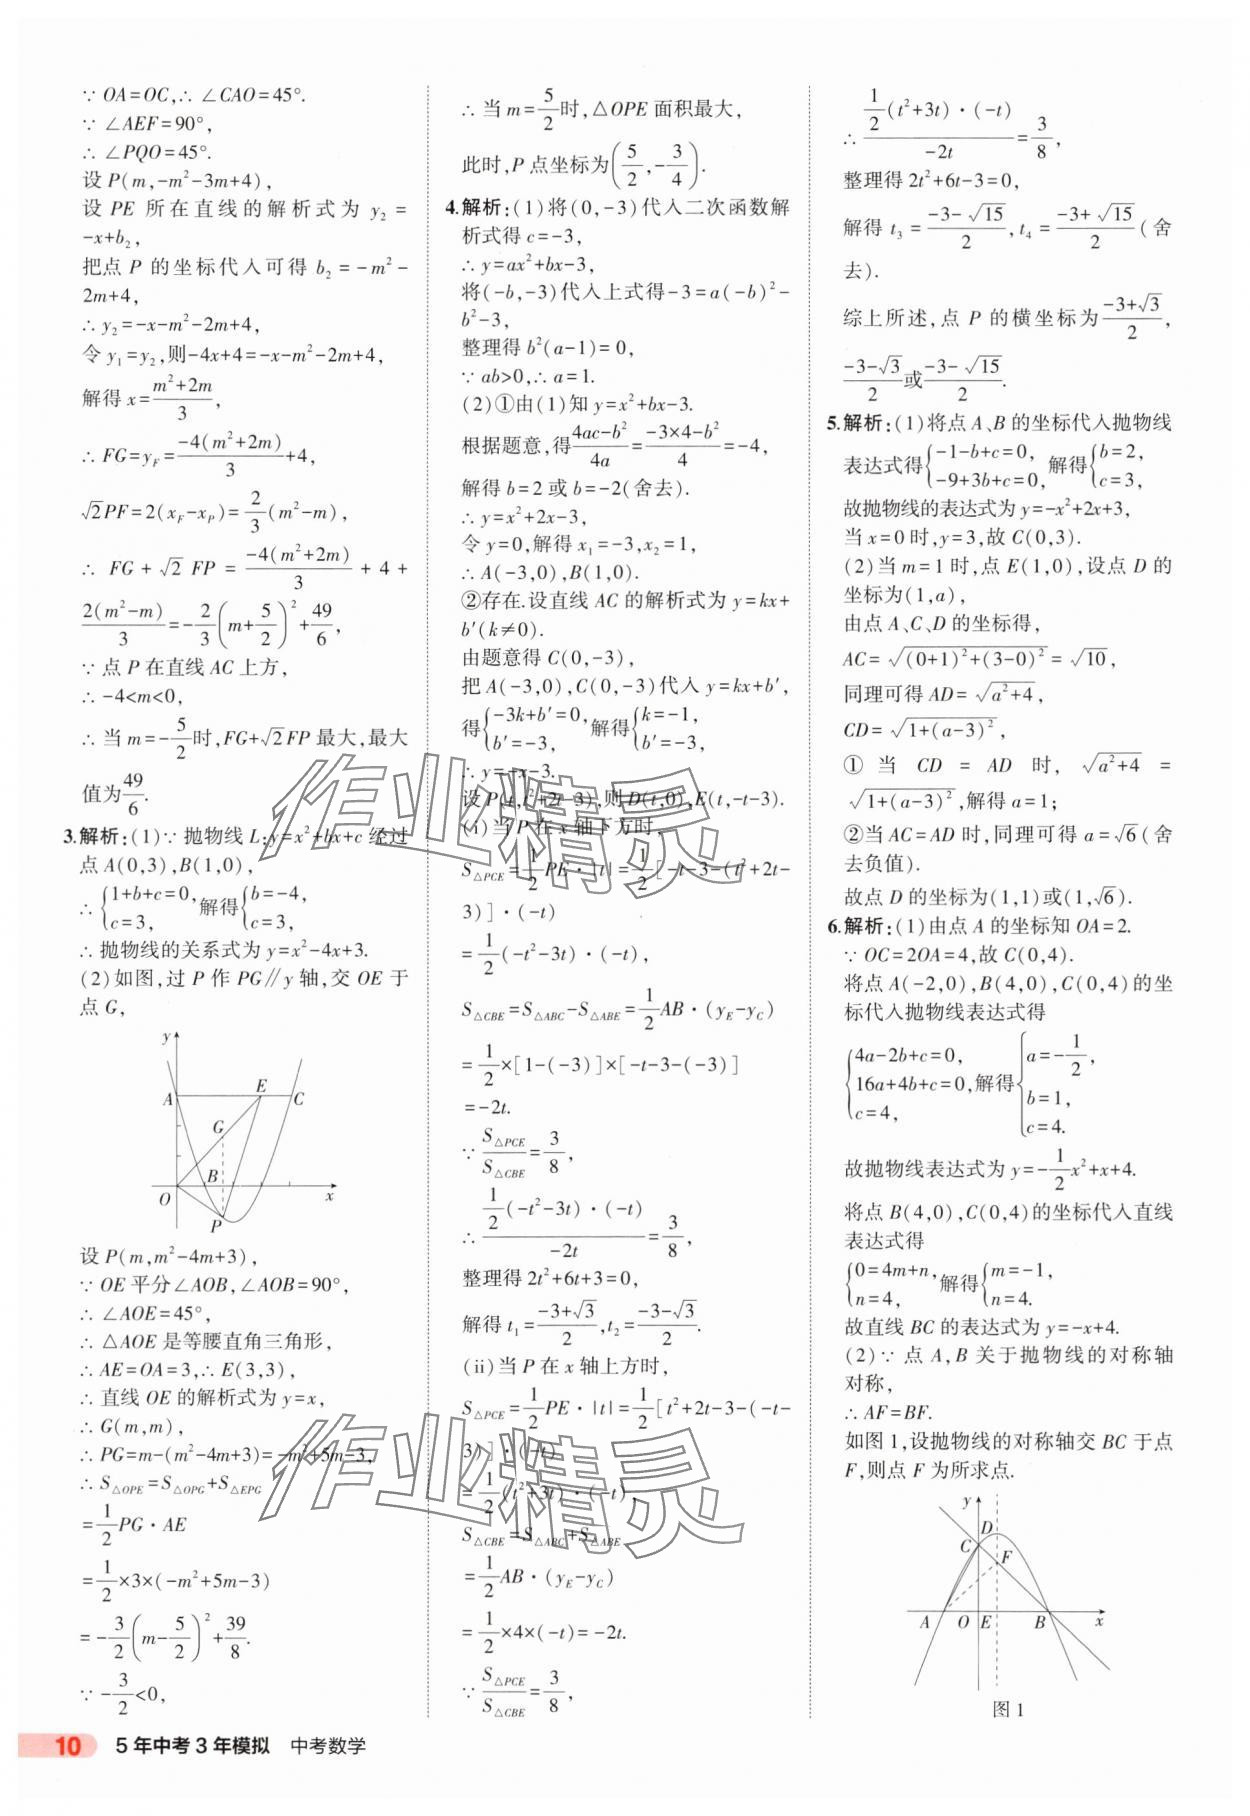 ∵ OA=OC,∴ ∠CAO=45°.
∵ ∠AEF=90°,
∴ ∠PQO=45°.
设 P(m,-m²-3m+4),
设 PE 所在直线的解析式为 y₂=
-x+b₂,
把点 P 的坐标代入可得 b₂=-m²-
2m+4,
∴ y₂=-x-m²-2m+4,
令 y₁=y₂,则-4x+4=-x-m²-2m+4,
解得 x=(m²+2m)/3,
∴ FG=y_F=-4(m²+2m)/3+4,
√2PF=2(x_F-x_P)=2/3(m²-m),
∴ FG+√2 FP=-4(m²+2m)/3+4+
2(m²-m)/3=-2/3(m+5/2)²+49/6,
∵ 点 P 在直线 AC 上方,
∴ -4<m<0,
∴ 当 m=-5/2时,FG+√2FP 最大,最大
值为49/6.
3.解析:(1)∵ 抛物线 L:y=x²+bx+c 经过
点 A(0,3),B(1,0),
∴ {1+b+c=0, c=3, 解得{b=-4, c=3,
∴ 抛物线的关系式为 y=x²-4x+3.
(2)如图,过 P 作 PG∥y 轴,交 OE 于
点 G,
y
A E C
G
O B x
P
设 P(m,m²-4m+3),
∵ OE 平分∠AOB,∠AOB=90°,
∴ ∠AOE=45°,
∴ △AOE 是等腰直角三角形,
∴ AE=OA=3,∴ E(3,3),
∴ 直线 OE 的解析式为 y=x,
∴ G(m,m),
∴ PG=m-(m²-4m+3)=-m²+5m-3,
∴ S△OPE=S△OPG+S△EPG
=1/2PG·AE
=1/2×3×(-m²+5m-3)
=-3/2(m-5/2)²+39/8.
∵ -3/2<0,
∴ 当 m=5/2时,△OPE 面积最大,
此时,P 点坐标为(5/2,-3/4).
4.解析:(1)将(0,-3)代入二次函数解
析式得 c=-3,
∴ y=ax²+bx-3,
将(-b,-3)代入上式得-3=a(-b)²-
b²-3,
整理得 b²(a-1)=0,
∵ ab>0,∴ a=1.
(2)①由(1)知 y=x²+bx-3.
根据题意,得(4ac-b²)/4a=(-3×4-b²)/4=-4,
解得 b=2 或 b=-2(舍去).
∴ y=x²+2x-3,
令 y=0,解得 x₁=-3,x₂=1,
∴ A(-3,0),B(1,0).
②存在.设直线 AC 的解析式为 y=kx+
b′(k≠0).
由题意得 C(0,-3),
把 A(-3,0),C(0,-3)代入 y=kx+b′,
得{-3k+b′=0, b′=-3, 解得{k=-1, b′=-3,
∴ y=-x-3.
设 P(t,t²+2t-3),则 D(t,0),E(t,-t-3).
(i)当 P 在 x 轴下方时,
S△PCE=1/2PE·|t|=1/2[-t-3-(t²+2t-
3)]·(-t)
=1/2(-t²-3t)·(-t),
S△CBE=S△ABC-S△ABE=1/2AB·(y_E-y_C)
=1/2×[1-(-3)]×[-t-3-(-3)]
=-2t.
∵ S△PCE/S△CBE=3/8,
∴ 1/2(-t²-3t)·(-t)/-2t=3/8,
整理得 2t²+6t+3=0,
解得 t₁=(-3+√3)/2,t₂=(-3-√3)/2.
(ii)当 P 在 x 轴上方时,
S△PCE=1/2PE·|t|=1/2[t²+2t-3-(-t-
3)]·(-t)
=1/2(t²+3t)·(-t),
S△CBE=S△ABC+S△ABE
=1/2AB·(y_E-y_C)
=1/2×4×(-t)=-2t.
∵ S△PCE/S△CBE=3/8,
∴ 1/2(t²+3t)·(-t)/-2t=3/8,
整理得 2t²+6t-3=0,
解得 t₃=(-3-√15)/2,t₄=(-3+√15)/2(舍
去).
综上所述,点 P 的横坐标为(-3+√3)/2,
(-3-√3)/2或(-3-√15)/2.
5.解析:(1)将点 A、B 的坐标代入抛物线
表达式得{-1-b+c=0, -9+3b+c=0, 解得{b=2, c=3,
故抛物线的表达式为 y=-x²+2x+3,
当 x=0 时,y=3,故 C(0,3).
(2)当 m=1 时,点 E(1,0),设点 D 的
坐标为(1,a),
由点 A、C、D 的坐标得,
AC=√((0+1)²+(3-0)²)=√10,
同理可得 AD=√(a²+4),
CD=√(1+(a-3)²),
①当 CD=AD 时,√(a²+4)=
√(1+(a-3)²),解得 a=1;
②当 AC=AD 时,同理可得 a=√6(舍
去负值).
故点 D 的坐标为(1,1)或(1,√6).
6.解析:(1)由点 A 的坐标知 OA=2.
∵ OC=2OA=4,故 C(0,4).
将点 A(-2,0),B(4,0),C(0,4)的坐
标代入抛物线表达式得
{4a-2b+c=0, 16a+4b+c=0, c=4, 解得{a=-1/2, b=1, c=4.
故抛物线表达式为 y=-1/2x²+x+4.
将点 B(4,0),C(0,4)的坐标代入直线
表达式得
{0=4m+n, n=4, 解得{m=-1, n=4.
故直线 BC 的表达式为 y=-x+4.
(2)∵ 点 A,B 关于抛物线的对称轴
对称,
∴ AF=BF.
如图 1,设抛物线的对称轴交 BC 于点
F,则点 F 为所求点.
y
D
C
F
A O E B x
图 1
作业精灵
作业精灵
10 5年中考3年模拟 中考数学